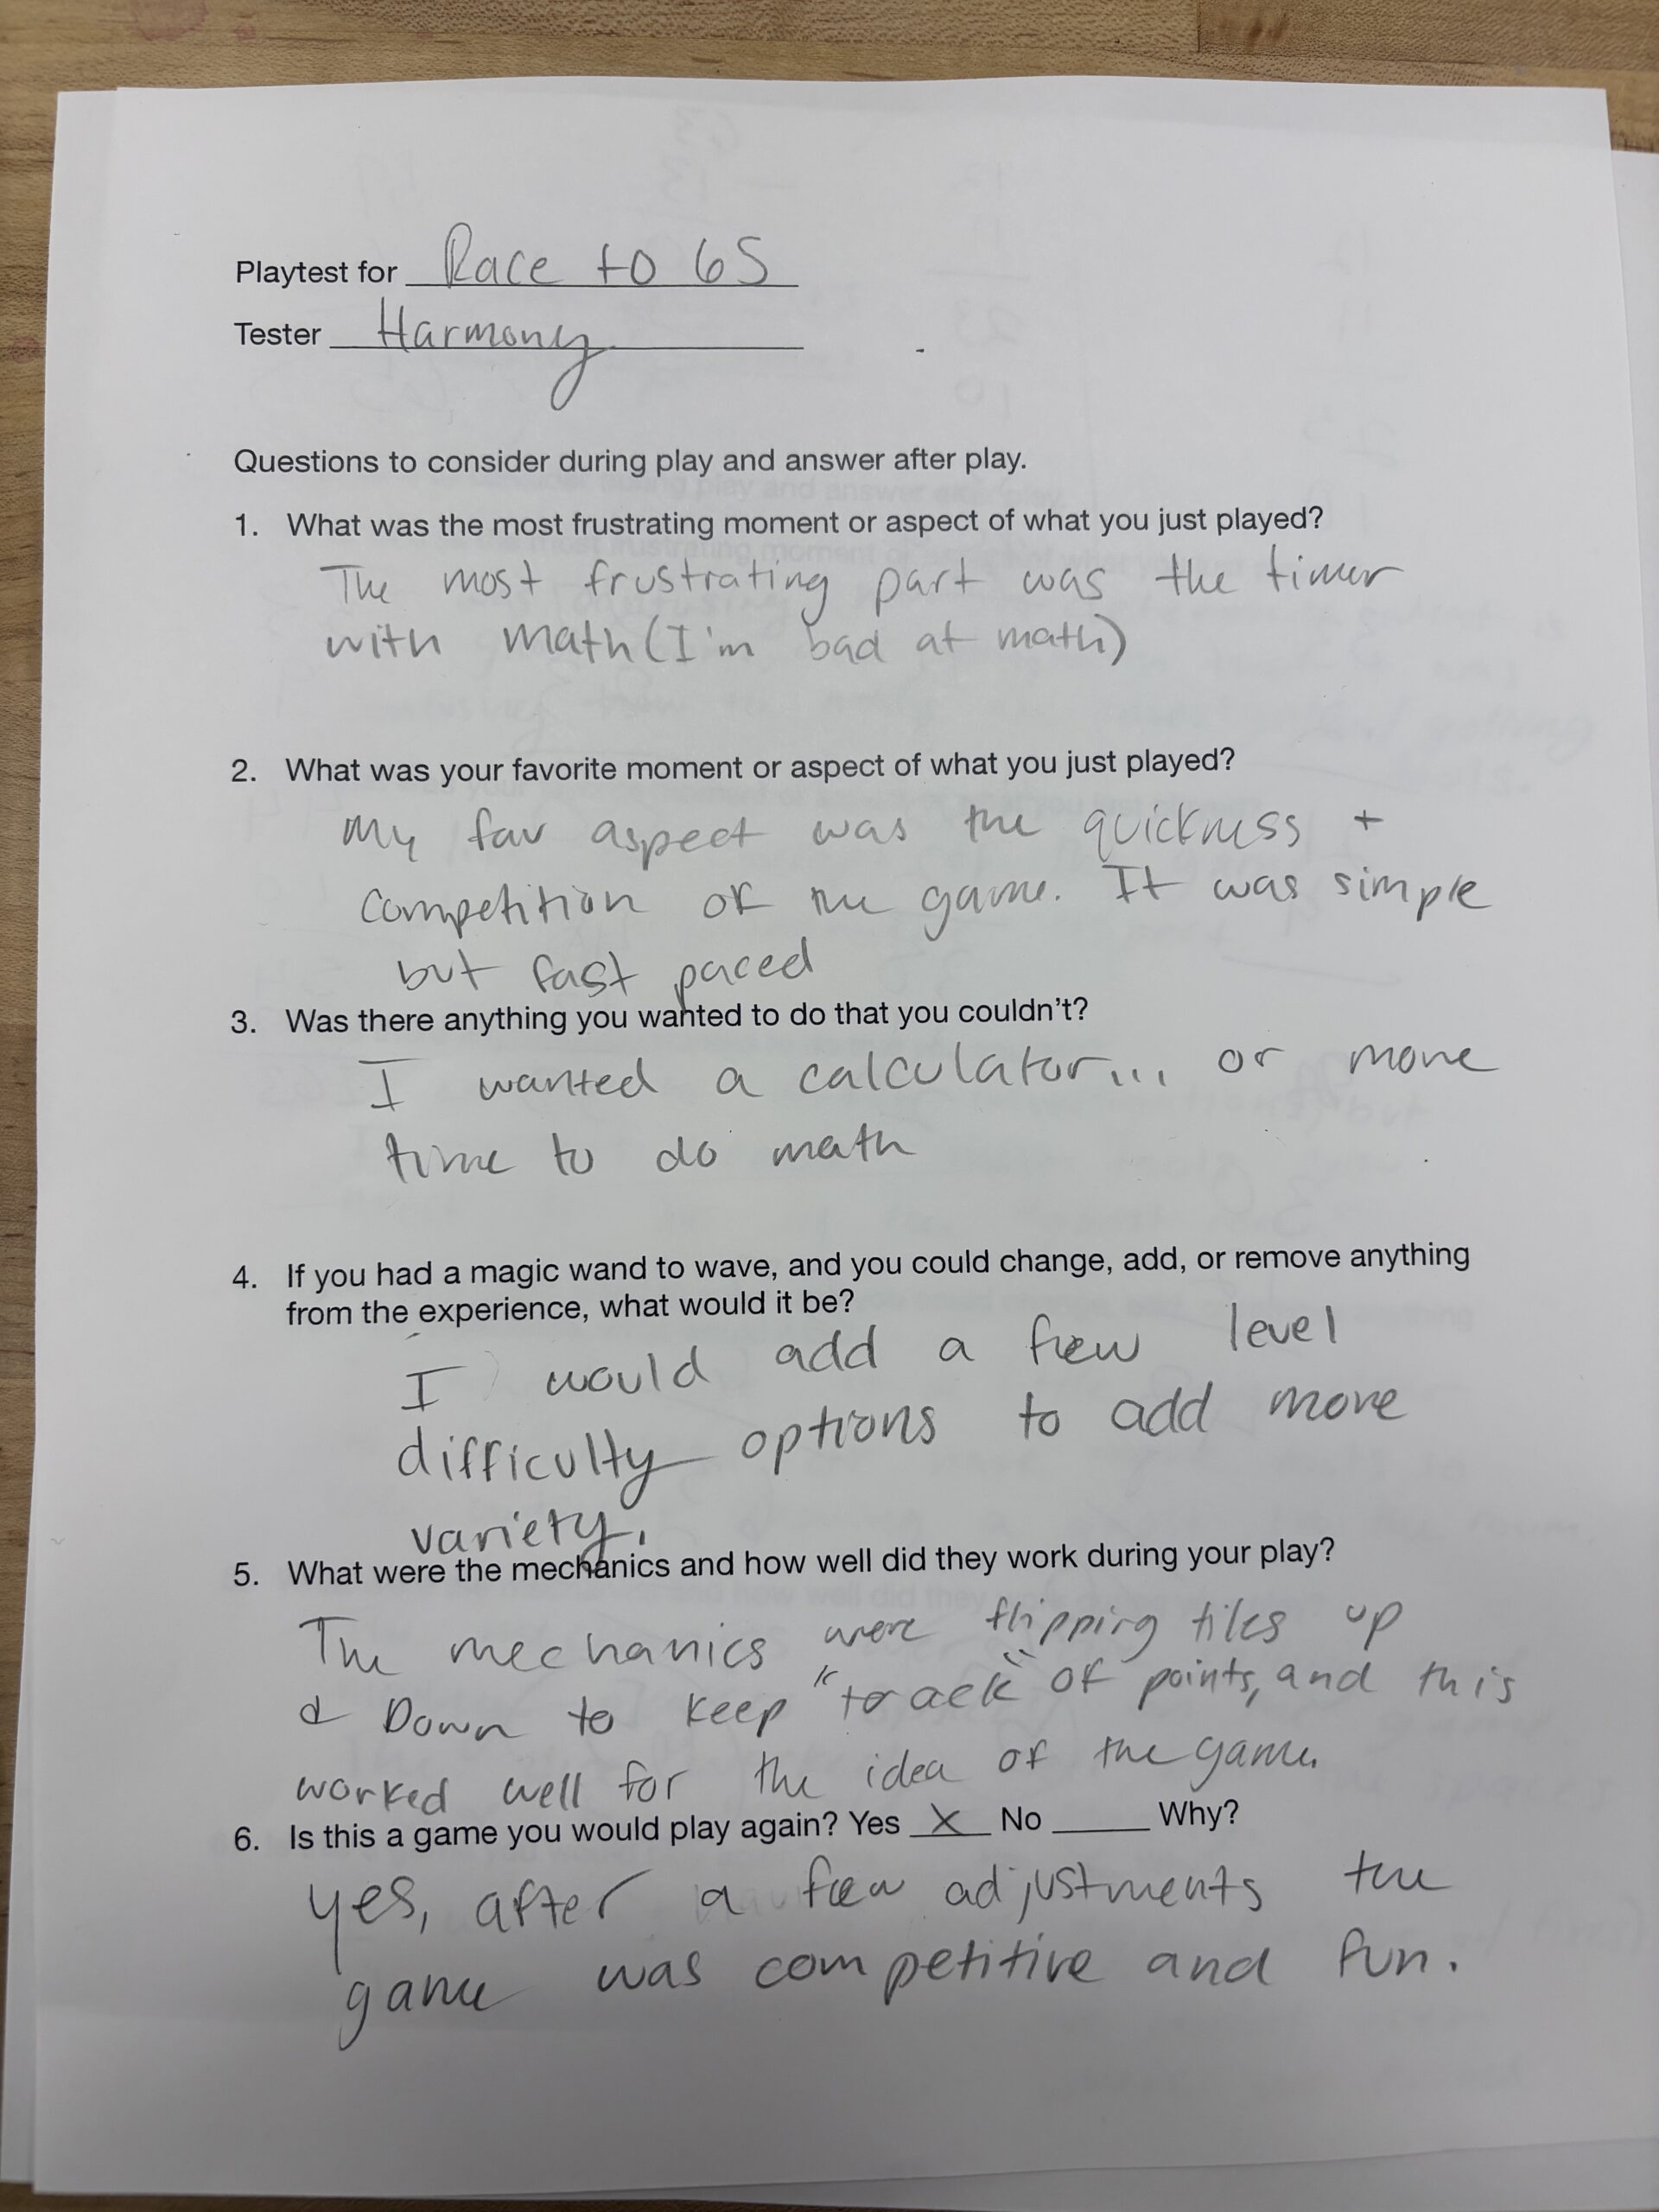 Playtest for Race to 65
Tester Harmony
Questions to consider during play and answer after play.
1. What was the most frustrating moment or aspect of what you just played?
The most frustrating part was the timer
with math (I'm bad at math)
2. What was your favorite moment or aspect of what you just played?
My fav aspect was the quickness +
competition of the game. It was simple
but fast paced
3. Was there anything you wanted to do that you couldn't?
I wanted a calculator... or more
time to do math
4. If you had a magic wand to wave, and you could change, add, or remove anything
from the experience, what would it be?
I would add a few level
difficulty options to add more
variety.
5. What were the mechanics and how well did they work during your play?
The mechanics were flipping tiles up
& Down to keep "track" of points, and this
worked well for the idea of the game.
6. Is this a game you would play again? Yes X No _____ Why?
yes, after a few adjustments the
game was competitive and fun.